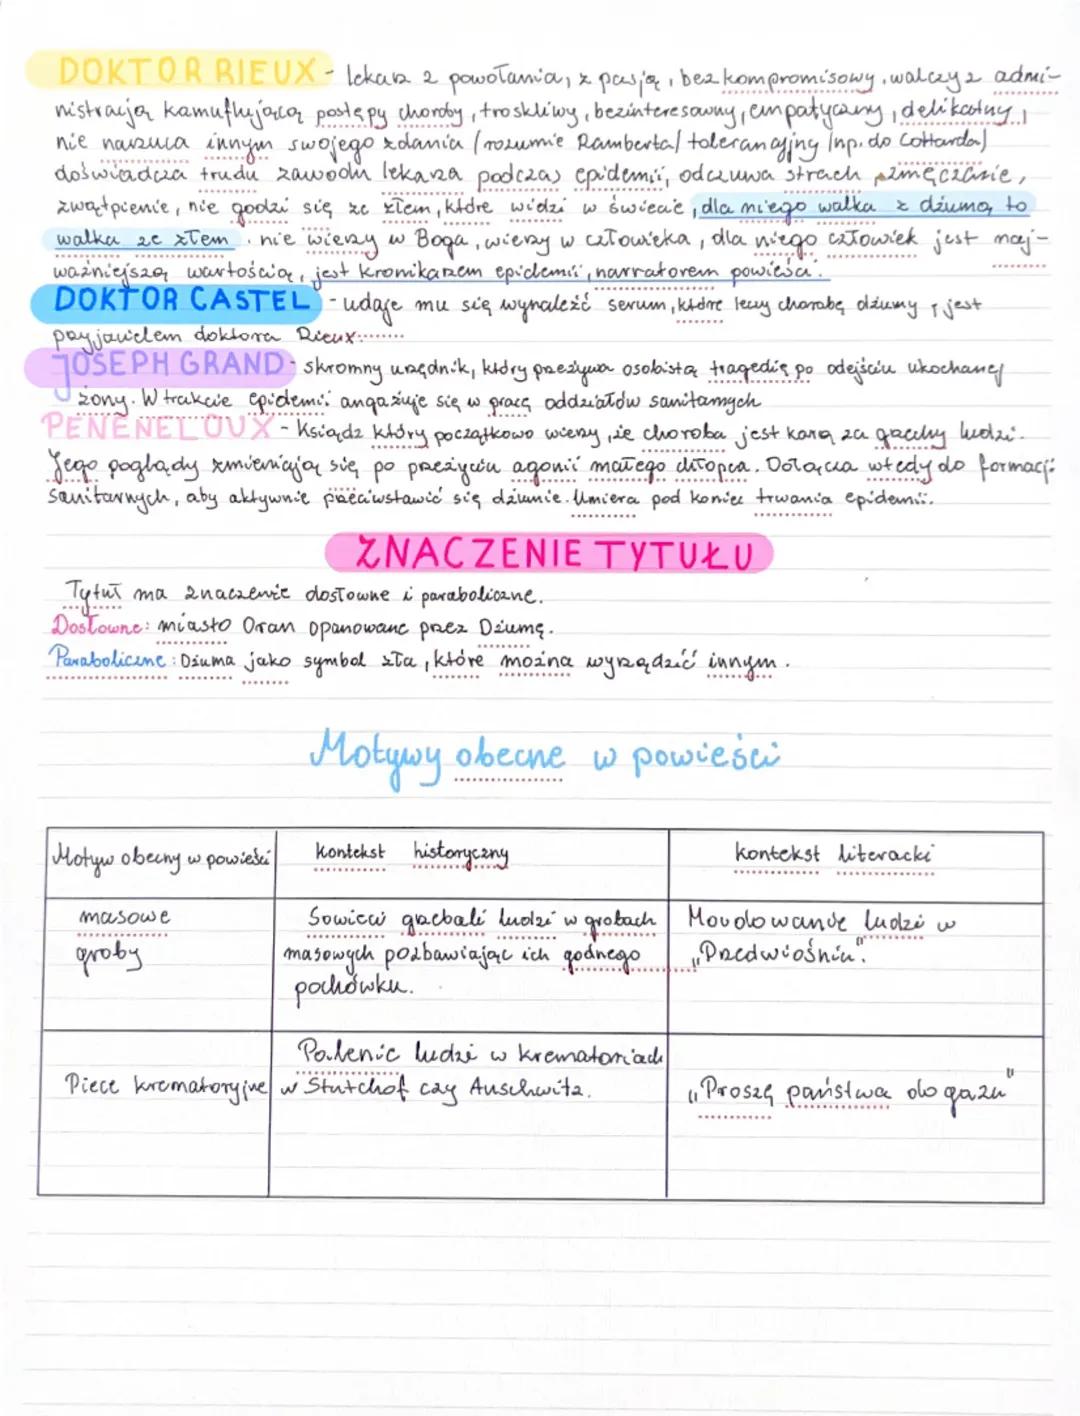 DOKTOR RIEUX - lekarz z powołania, z pasją, bezkompromisowy, walczy z admi-
nistracją kamuflującą postępy choroby, troskliwy, bezinteresowny, empatyczny, delikatny,
nie narzuca innym swojego zdania (rozumie Ramberta) tolerancyjny (np. do Cottarda)
doświadcza trudu zawodu lekarza podczas epidemii, odczuwa strach, zmęczenie,
zwątpienie, nie godzi się ze złem, które widzi w świecie, dla niego walka z dżumą to
walka ze złem. nie wierzy w Boga, wierzy w człowieka, dla niego człowiek jest naj-
ważniejszą wartością, jest kronikarzem epidemii, narratorem powieści.
DOKTOR CASTEL - udaje mu się wynaleźć serum, które leczy chorobę dżumy, jest
przyjacielem doktora Rieux.
JOSEPH GRAND - skromny urzędnik, który przeżywa osobistą tragedię po odejściu ukochanej
żony. W trakcie epidemii angażuje się w pracę oddziałów sanitarnych
PENENELOUX - Ksiądz który początkowo wierzy, że choroba jest karą za grzechy ludzi.
Jego poglądy zmieniają się po przeżyciu agonii małego chłopca. Dołącza wtedy do formacji
Sanitarnych, aby aktywnie przeciwstawić się dżumie. Umiera pod koniec trwania epidemii.
ZNACZENIE TYTUŁU
Tytuł ma znaczenie dosłowne i paraboliczne.
Dosłowne: miasto Oran opanowane przez Dżumę.
Paraboliczne: Dżuma jako symbol zła, które można wyrządzić innym.
Motywy obecne w powieści
Motyw obecny w powieści kontekst historyczny kontekst literacki
masowe Sowieci grzebali ludzi w grobach Mordowanie ludzi w
groby masowych pozbawiając ich godnego „Przedwiośniu".
pochówku.
Palenie ludzi w krematoriach
Piece krematoryjne w Stutthof czy Auschwitz. „Proszę państwa do gazu"